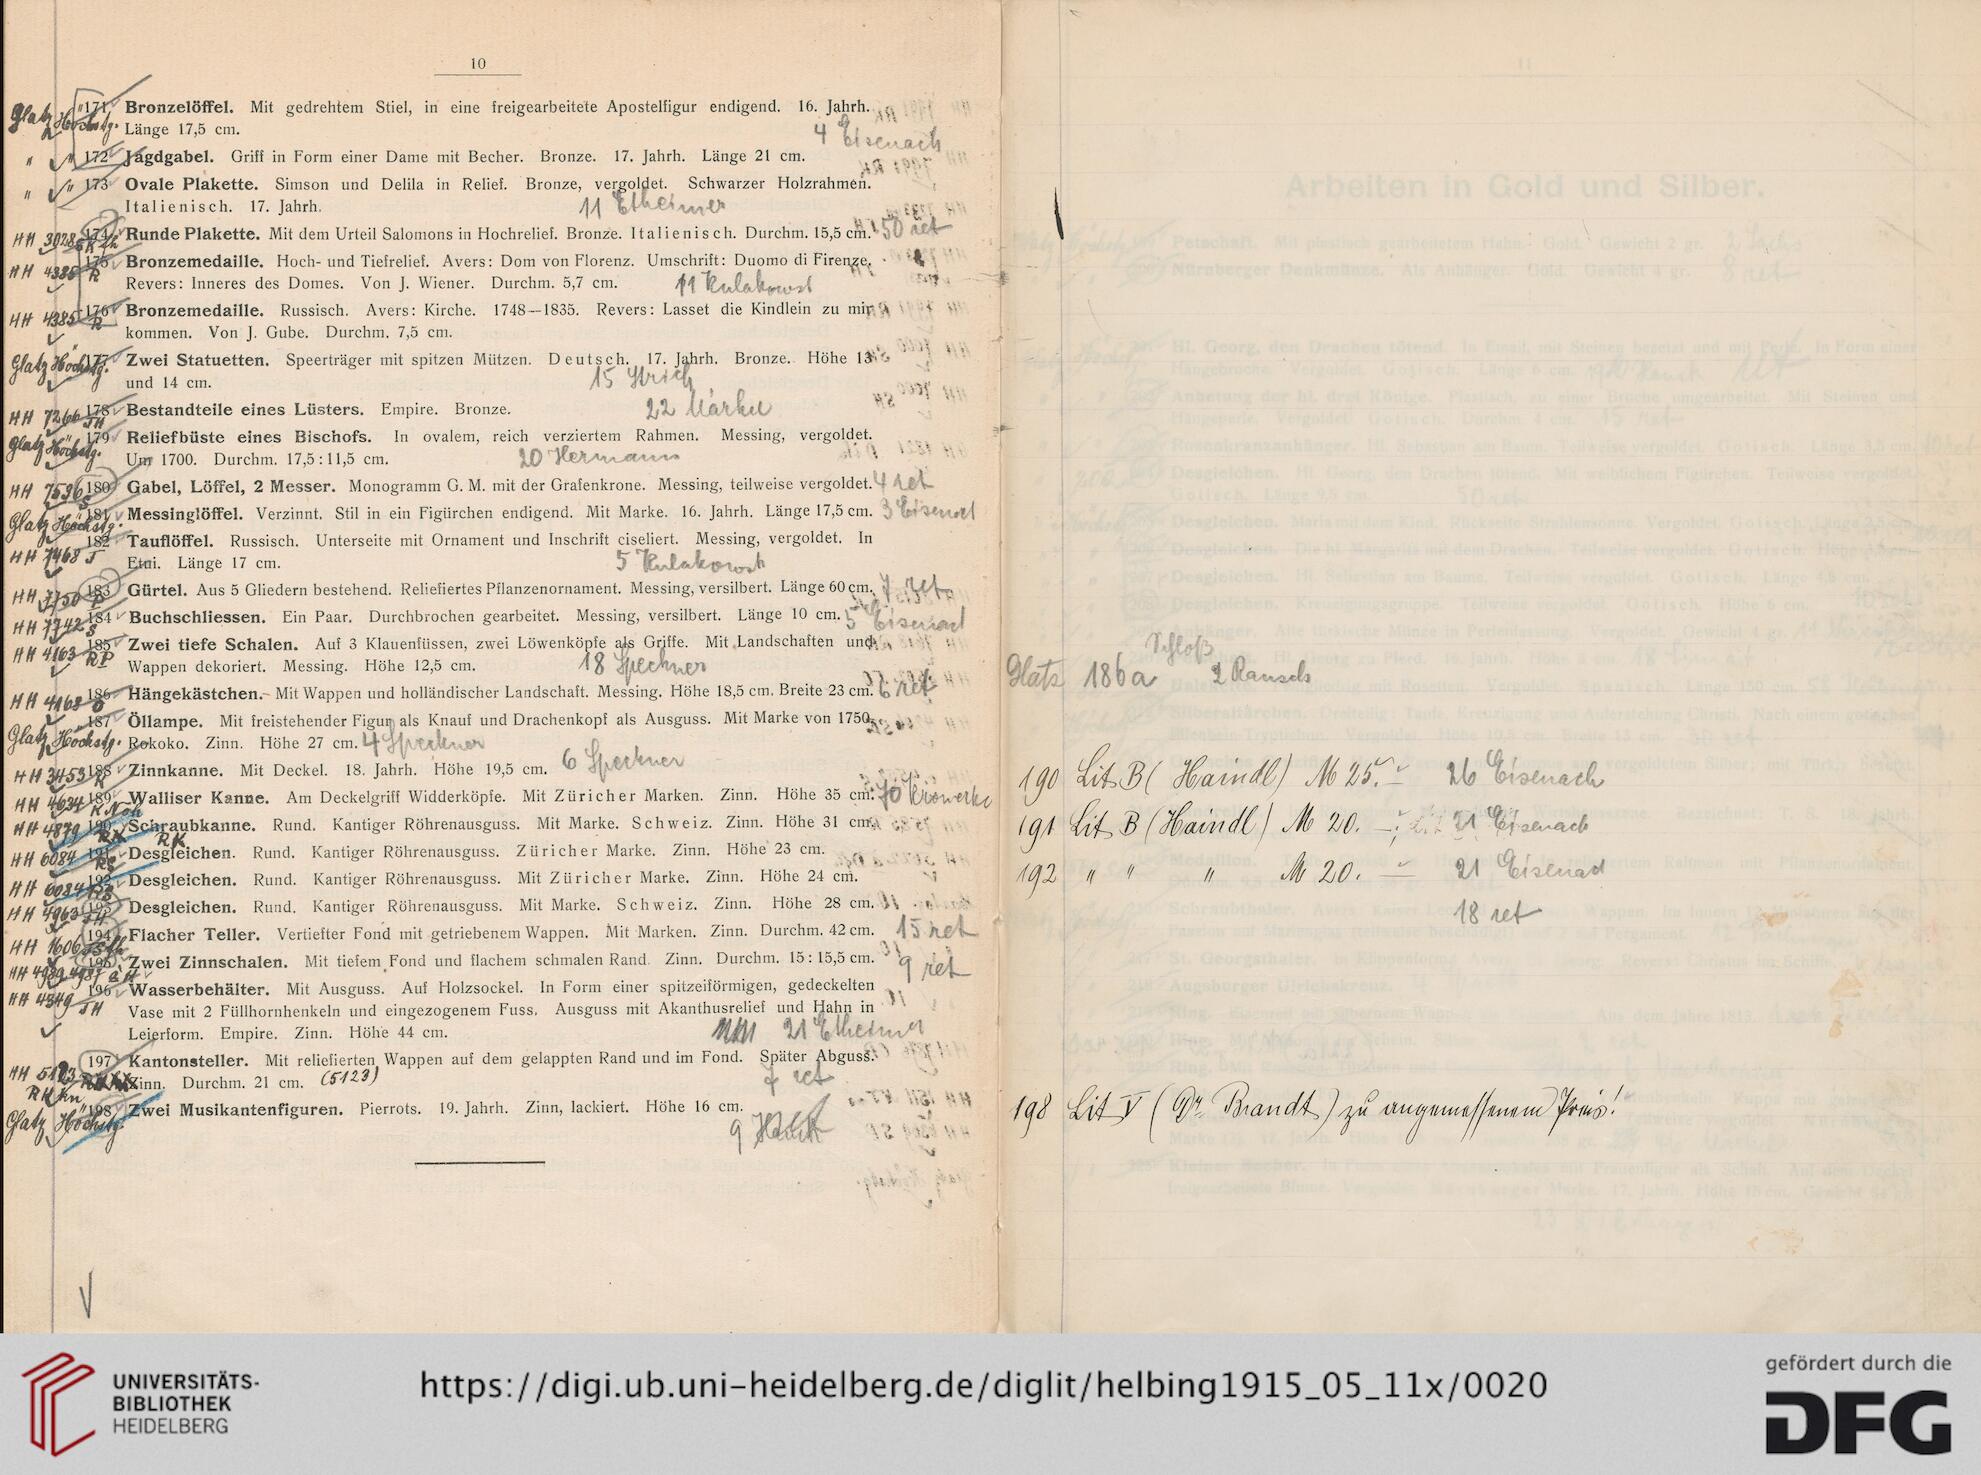 10
Glatz Höchstg. 171 Bronzelöffel. Mit gedrehtem Stiel, in eine freigearbeitete Apostelfigur endigend. 16. Jahrh.
Länge 17,5 cm. 4 Eisenach
" " 172 Jagdgabel. Griff in Form einer Dame mit Becher. Bronze. 17. Jahrh. Länge 21 cm.
" " 173 Ovale Plakette. Simson und Delila in Relief. Bronze, vergoldet. Schwarzer Holzrahmen.
Italienisch. 17. Jahrh. 11 Etheimer
HH 3028 174 Runde Plakette. Mit dem Urteil Salomons in Hochrelief. Bronze. Italienisch. Durchm. 15,5 cm. 50 ret
HH 4385 R 175 Bronzemedaille. Hoch- und Tiefrelief. Avers: Dom von Florenz. Umschrift: Duomo di Firenze.
Revers: Inneres des Domes. Von J. Wiener. Durchm. 5,7 cm. 11 Kulakowst
HH 4385 R 176 Bronzemedaille. Russisch. Avers: Kirche. 1748—1835. Revers: Lasset die Kindlein zu mir
kommen. Von J. Gube. Durchm. 7,5 cm.
Glatz Höchstg. 177 Zwei Statuetten. Speerträger mit spitzen Mützen. Deutsch. 17. Jahrh. Bronze. Höhe 13
und 14 cm. 15
HH 7266 JH 178 Bestandteile eines Lüsters. Empire. Bronze. 22
Glatz Höchstg. 179 Reliefbüste eines Bischofs. In ovalem, reich verziertem Rahmen. Messing, vergoldet.
Um 1700. Durchm. 17,5 : 11,5 cm. 20 Hermann
HH 7596 S 180 Gabel, Löffel, 2 Messer. Monogramm G. M. mit der Grafenkrone. Messing, teilweise vergoldet. 4 ret
Glatz Höchstg. 181 Messinglöffel. Verzinnt. Stil in ein Figürchen endigend. Mit Marke. 16. Jahrh. Länge 17,5 cm. 3 Eisenach
HH 7468 J 182 Tauflöffel. Russisch. Unterseite mit Ornament und Inschrift ciseliert. Messing, vergoldet. In
Etui. Länge 17 cm. 5 Kulakowst
HH 7750 183 Gürtel. Aus 5 Gliedern bestehend. Reliefiertes Pflanzenornament. Messing, versilbert. Länge 60 cm. 7 ret
HH 7742 S 184 Buchschliessen. Ein Paar. Durchbrochen gearbeitet. Messing, versilbert. Länge 10 cm. 5 Eisenach
HH 4163 RP 185 Zwei tiefe Schalen. Auf 3 Klauenfüssen, zwei Löwenköpfe als Griffe. Mit Landschaften und
Wappen dekoriert. Messing. Höhe 12,5 cm. 18 Speckner
HH 4168 186 Hängekästchen. Mit Wappen und holländischer Landschaft. Messing. Höhe 18,5 cm. Breite 23 cm. 6 ret
Glatz Höchstg. 187 Öllampe. Mit freistehender Figur als Knauf und Drachenkopf als Ausguss. Mit Marke von 1750.
Rokoko. Zinn. Höhe 27 cm. 4 Speckner
HH 3453 R 188 Zinnkanne. Mit Deckel. 18. Jahrh. Höhe 19,5 cm. 6 Speckner
HH 4634 189 Walliser Kanne. Am Deckelgriff Widderköpfe. Mit Züricher Marken. Zinn. Höhe 35 cm. 70
HH 4879 RK 190 Schraubkanne. Rund. Kantiger Röhrenausguss. Mit Marke. Schweiz. Zinn. Höhe 31 cm.
RK
HH 6084 191 Desgleichen. Rund. Kantiger Röhrenausguss. Züricher Marke. Zinn. Höhe 23 cm.
HH 6084 192 Desgleichen. Rund. Kantiger Röhrenausguss. Mit Züricher Marke. Zinn. Höhe 24 cm.
HH 4963 193 Desgleichen. Rund. Kantiger Röhrenausguss. Mit Marke. Schweiz. Zinn. Höhe 28 cm.
HH 1606 194 Flacher Teller. Vertiefter Fond mit getriebenem Wappen. Mit Marken. Zinn. Durchm. 42 cm. 15 ret
HH 4989 195 Zwei Zinnschalen. Mit tiefem Fond und flachem schmalen Rand. Zinn. Durchm. 15 : 15,5 cm. 9 ret
HH 4349 JH 196 Wasserbehälter. Mit Ausguss. Auf Holzsockel. In Form einer spitzeiförmigen, gedeckelten
Vase mit 2 Füllhornhenkeln und eingezogenem Fuss. Ausguss mit Akanthusrelief und Hahn in
Leierform. Empire. Zinn. Höhe 44 cm. 21 Etheimer
HH 5123 197 Kantonsteller. Mit reliefierten Wappen auf dem gelappten Rand und im Fond. Später Abguss.
Zinn. Durchm. 21 cm. (5123) 7 ret
Glatz Höchstg. 198 Zwei Musikantenfiguren. Pierrots. 19. Jahrh. Zinn, lackiert. Höhe 16 cm.
9
Schloß
Glatz 186a 2 Rausch
190 Lit B (Haindl) M 25.— 26 Eisenach
191 Lit B (Haindl) M 20.— 21 Eisenach
192 " " " M 20.— 21 Eisenach
18 ret
198 Lit V (Dr. Brandt) zu angemessenem Preis!
UNIVERSITÄTS-
BIBLIOTHEK
HEIDELBERG
https://digi.ub.uni-heidelberg.de/diglit/helbing1915_05_11x/0020
gefördert durch die
DFG